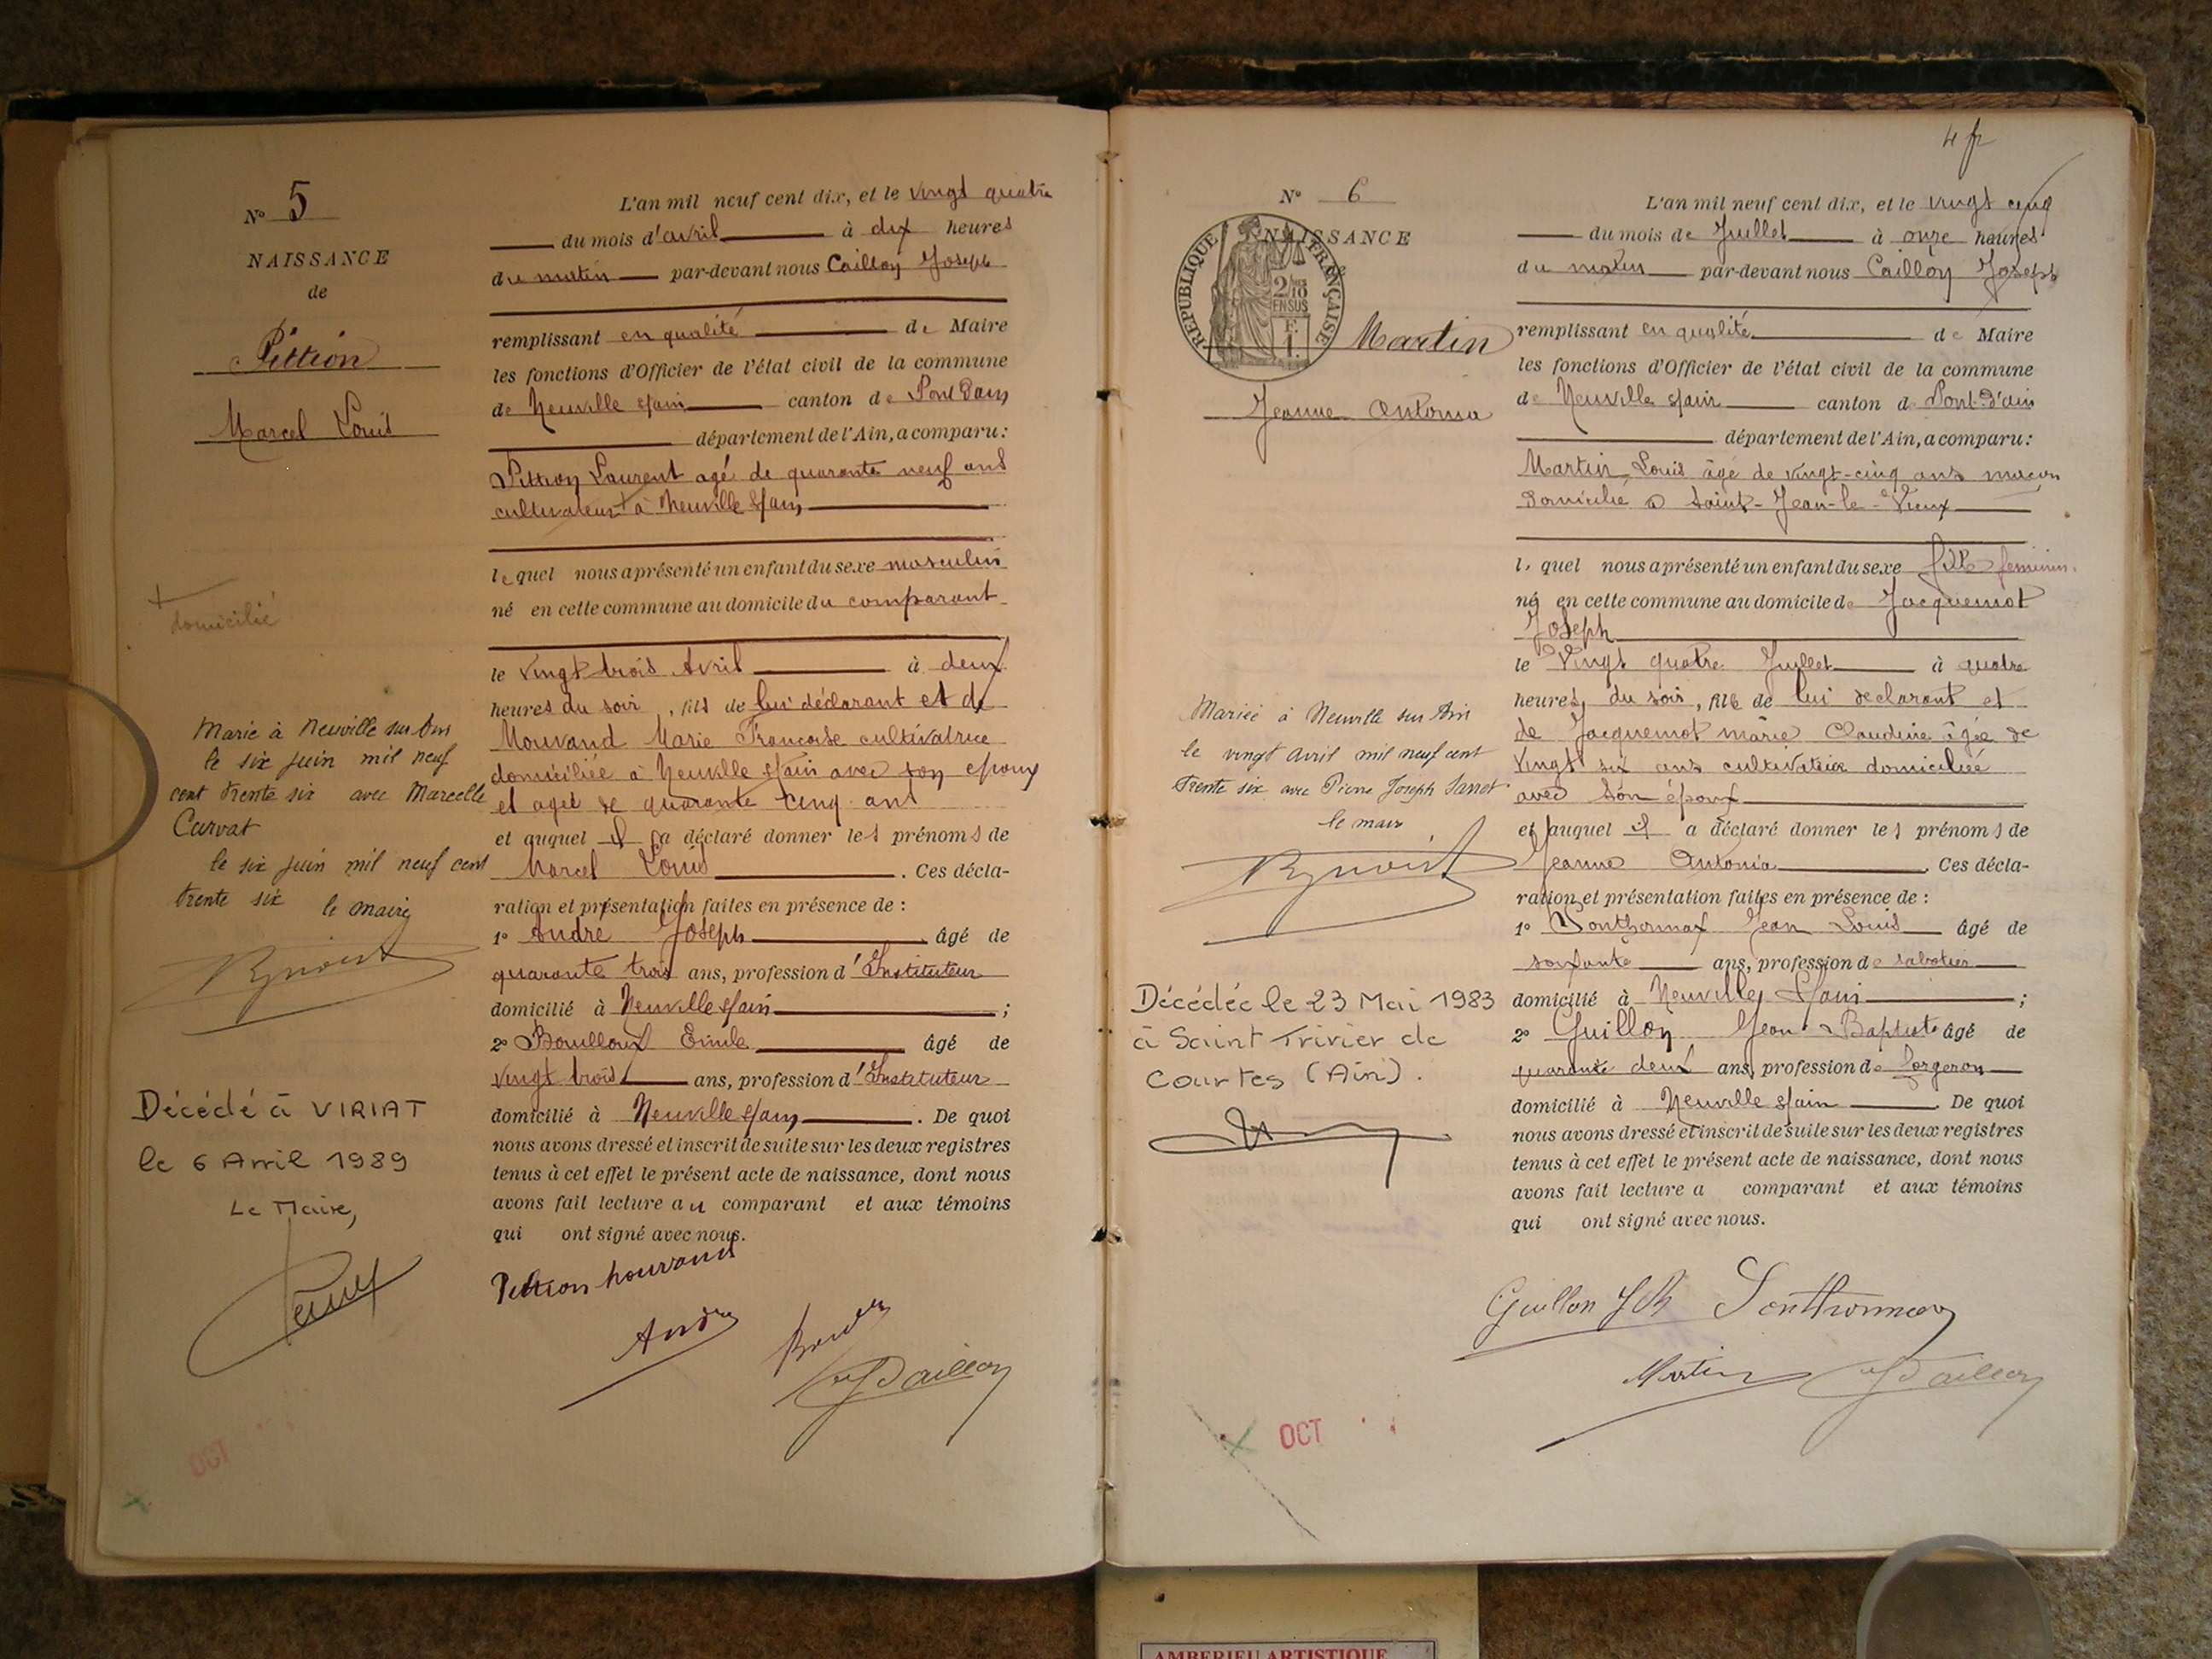 N° 5
NAISSANCE
de
Pittion
Marcel Louis
domicilié
Marié à Neuville sur Ain
le six juin mil neuf
cent trente six avec Marcelle
Carvat
le six juin mil neuf cent
trente six le maire
Décédé à VIRIAT
le 6 Avril 1989
Le Maire,
L'an mil neuf cent dix, et le vingt quatre
du mois d'avril à dix heures
du matin par-devant nous Caillon Joseph
remplissant en qualité de Maire
les fonctions d'Officier de l'état civil de la commune
de Neuville s/ain canton de Pont d'ain
département de l'Ain, a comparu :
Pittion Laurent agé de quarante neuf ans
cultivateur + à Neuville s/ain
lequel nous a présenté un enfant du sexe masculin
né en cette commune au domicile du comparant
le vingt trois Avril à deux
heures du soir, fils de lui déclarant et de
Mouvand Marie Françoise cultivatrice
domiciliée à Neuville s/ain avec son époux
et agée de quarante cinq ans
et auquel il a déclaré donner les prénoms de
Marcel Louis. Ces décla-
ration et présentation faites en présence de :
1° André Joseph âgé de
quarante trois ans, profession d'Instituteur
domicilié à Neuville s/ain ;
2° Bouilloux Emile âgé de
vingt trois ans, profession d'Instituteur
domicilié à Neuville s/ain. De quoi
nous avons dressé et inscrit de suite sur les deux registres
tenus à cet effet le présent acte de naissance, dont nous
avons fait lecture au comparant et aux témoins
qui ont signé avec nous.
Pittion Mouvand
André
J Caillon
OCT
4 f
N° 6
NAISSANCE
REPUBLIQUE FRANÇAISE
2/10
EN SUS
F.
1.
Martin
Jeanne Antonia
Mariée à Neuville sur Ain
le vingt avril mil neuf cent
trente six avec Pierre Joseph
le maire
Décédée le 23 Mai 1983
à Saint Trivier de
Courtes (Ain).
L'an mil neuf cent dix, et le vingt cinq
du mois de Juillet à onze heures
du matin par-devant nous Caillon Joseph
remplissant en qualité de Maire
les fonctions d'Officier de l'état civil de la commune
de Neuville s/ain canton de Pont-d'ain
département de l'Ain, a comparu :
Martin Louis âgé de vingt-cinq ans maçon
domicilié à Saint-Jean-le-Vieux
lequel nous a présenté un enfant du sexe fille féminin
né en cette commune au domicile de Jacquemot
Joseph
le vingt quatre Juillet à quatre
heures du soir, fille de lui déclarant et
de Jacquemot marie Claudine âgée de
vingt six ans cultivatrice domiciliée
avec son époux
et auquel il a déclaré donner les prénoms de
Jeanne Antonia. Ces décla-
ration et présentation faites en présence de :
1° Sonthonnax Jean Louis âgé de
soixante ans, profession de sabotier
domicilié à Neuville s/ain ;
2° Guillon Jean-Baptiste âgé de
quarante deux ans, profession de forgeron
domicilié à Neuville s/ain. De quoi
nous avons dressé et inscrit de suite sur les deux registres
tenus à cet effet le présent acte de naissance, dont nous
avons fait lecture a comparant et aux témoins
qui ont signé avec nous.
Guillon JB Sonthonnax
Martin J Caillon
OCT
AMBERIEU ARTISTIQUE